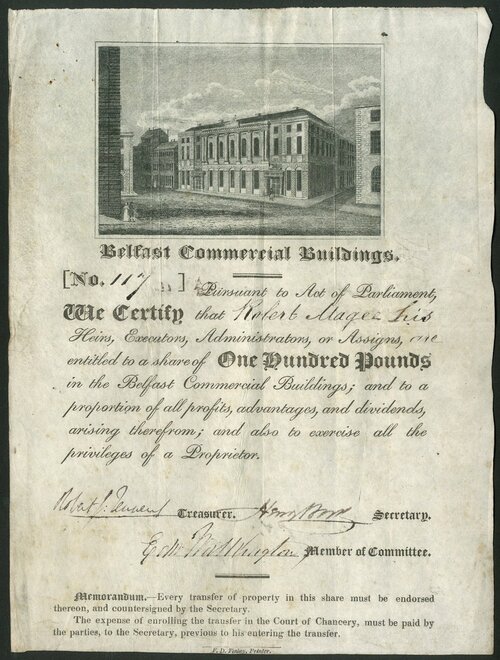 Belfast Commercial Buildings.
[No. 117]
Pursuant to Act of Parliament,
We Certify that Robert Magee his
Heirs, Executors, Administrators, or Assigns, are
entitled to a share of One Hundred Pounds
in the Belfast Commercial Buildings; and to a
proportion of all profits, advantages, and dividends,
arising therefrom; and also to exercise all the
privileges of a Proprietor.
Robert Tennent Treasurer. Secretary.
Member of Committee.
Memorandum.—Every transfer of property in this share must be endorsed
thereon, and countersigned by the Secretary.
The expense of enrolling the transfer in the Court of Chancery, must be paid by
the parties, to the Secretary, previous to his entering the transfer.
F. D. Finlay, Printer.